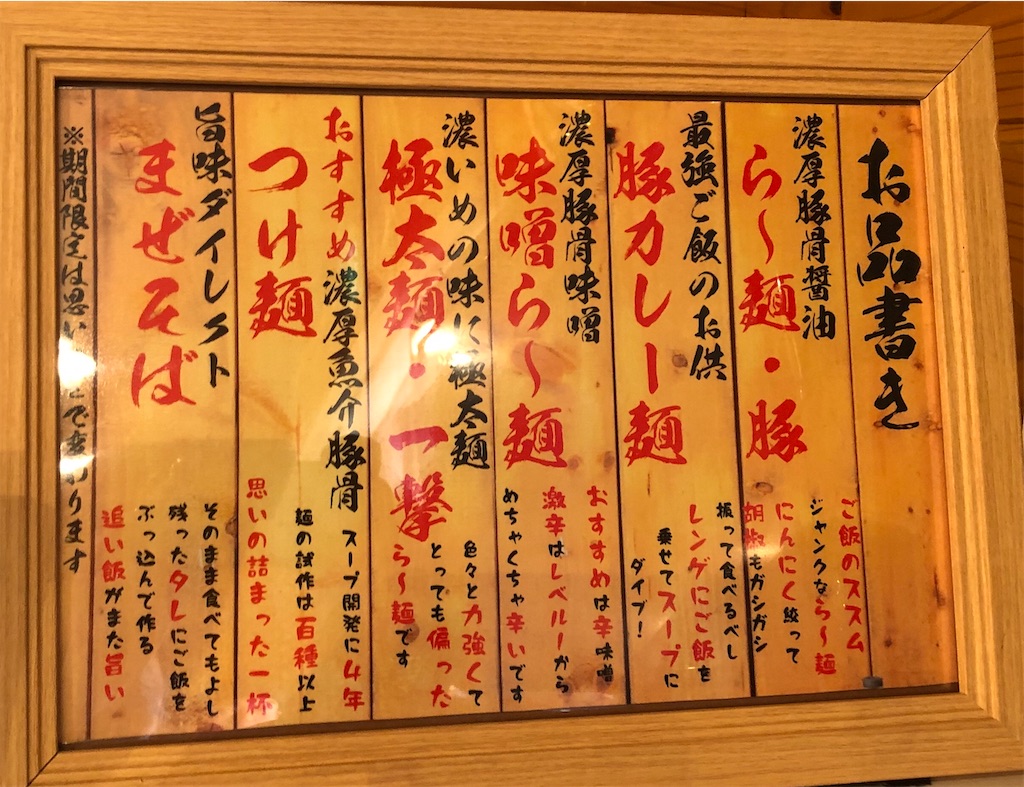 お品書き
濃厚豚骨醤油
ら〜麺・豚
ご飯のススム
ジャンクなら〜麺
にんにく絞って
胡椒もガシガシ
振って食べるべし
最強ご飯のお供
豚カレー麺
レンゲにご飯を
乗せてスープに
ダイブ！
濃厚豚骨味噌
味噌ら〜麺
おすすめは辛味噌
激辛はレベル一から
めちゃくちゃ辛いです
濃いめの味に極太麺
極太麺！一撃
色々と力強くて
とっても偏った
ら〜麺です
おすすめ濃厚魚介豚骨
つけ麺
スープ開発に4年
麺の試作は百種以上
思いの詰まった一杯
旨味ダイレクト
まぜそば
そのまま食べてもよし
残ったタレにご飯を
ぶっ込んで作る
追い飯がまた旨い
※期間限定は思い とで変わります